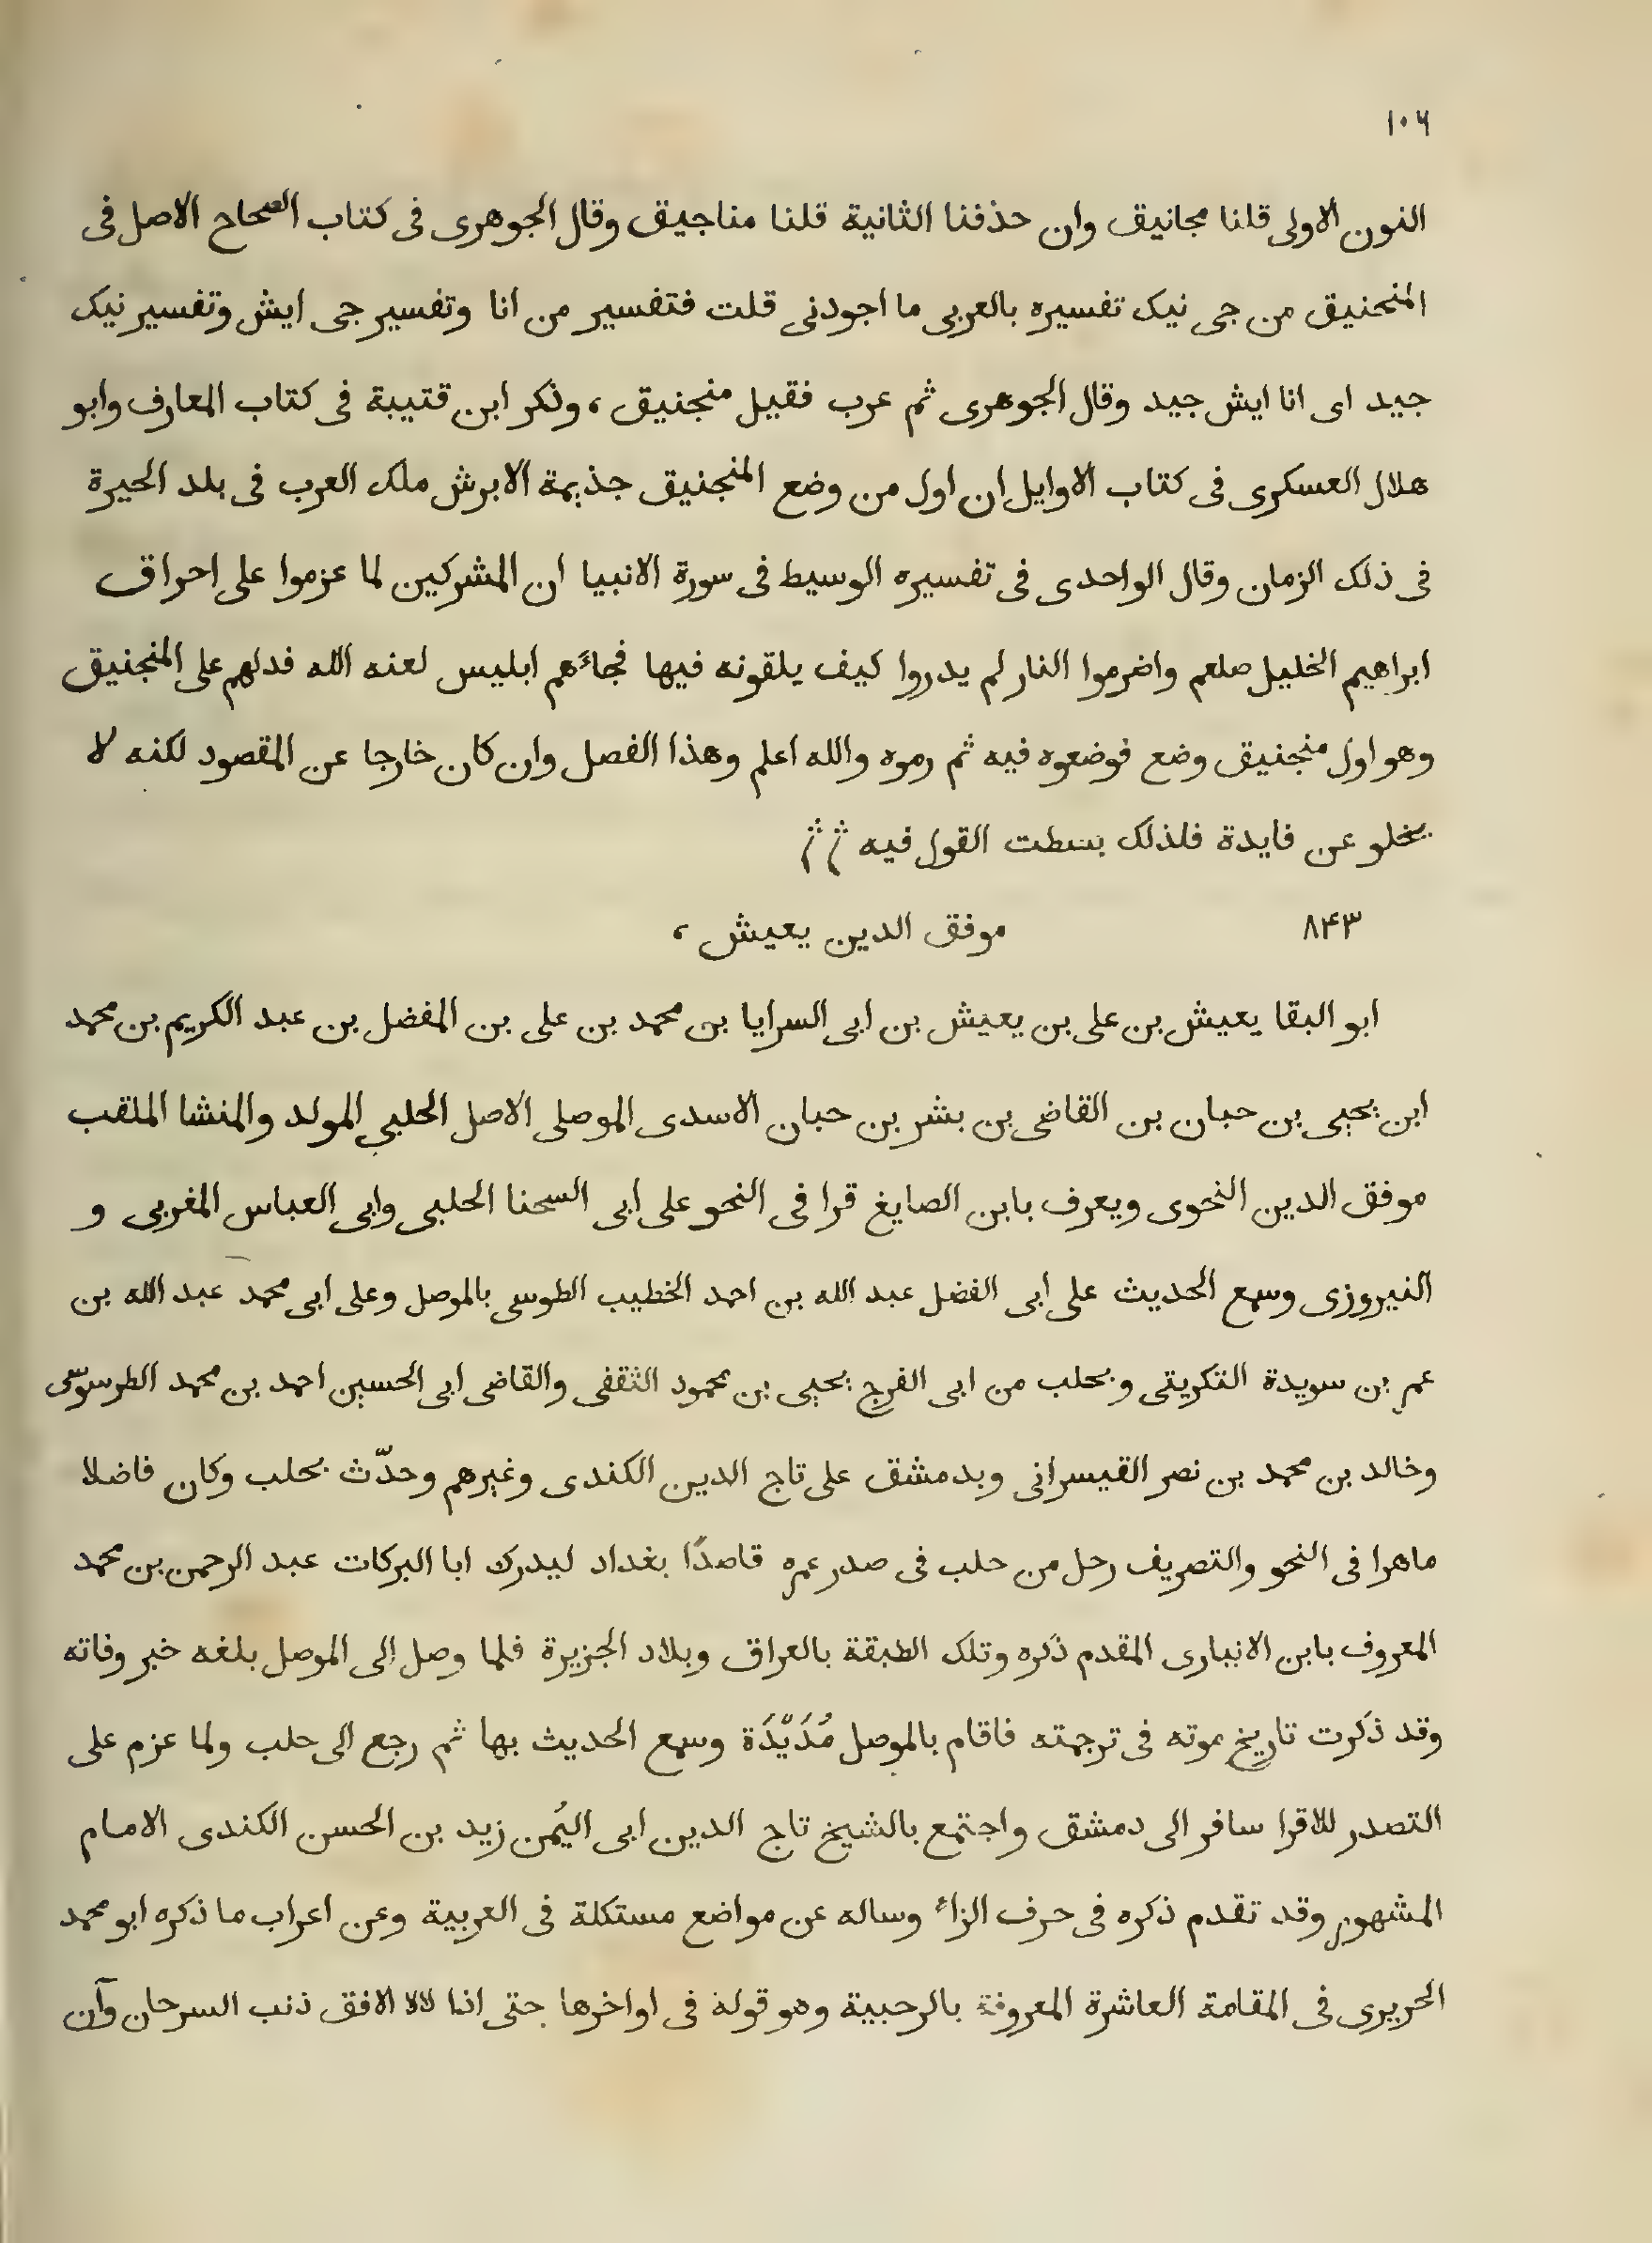 ١٠٦
النون الاولى قلنا مجانيق وان حذفنا الثانية قلنا مناجيق وقال الجوهرى فى كتاب الصحاح الاصل فى
المنجنيق من جى نيك تفسيره بالعربى ما اجودنى قلت فتفسير من انا وتفسير جى ايش وتفسير نيك
جيد اى انا ايش جيد وقال الجوهرى ثم عرب فقيل منجنيق، وذكر ابن قتيبة فى كتاب المعارف وابو
هلال العسكرى فى كتاب الاوايل ان اول من وضع المنجنيق جذيمة الابرش ملك العرب فى بلد الحيرة
فى ذلك الزمان وقال الواحدى فى تفسيره الوسيط فى سورة الانبيا ان المشركين لما عزموا على احراق
ابراهيم الخليل صلعم واضرموا النار لم يدروا كيف يلقونه فيها فجاءهم ابليس لعنه الله فدلهم على المنجنيق
وهو اول منجنيق وضع فوضعوه فيه ثم رموه والله اعلم وهذا الفصل وان كان خارجا عن المقصود لكنه لا
يخلو عن فايدة فلذلك بسطت القول فيه
٨۴٣ موفق الدين يعيش،
ابو البقا يعيش بن على بن يعيش بن ابى السرايا بن محمد بن على بن المفضل بن عبد الكريم بن محمد
ابن يحيى بن حبان بن القاضى بن بشر بن حبان الاسدى الموصلى الاصل الحلبى المولد والمنشا الملقب
موفق الدين النحوى ويعرف بابن الصايغ قرا فى النحو على ابى السحنا الحلبى وابى العباس المغربى و
النيروزى وسمع الحديث على ابى الفضل عبد الله بن احمد الخطيب الطوسى بالموصل وعلى ابى محمد عبد الله بن
عمر بن سويدة التكريتى وبحلب من ابى الفرج يحيى بن محمود الثقفى والقاضى ابى الحسين احمد بن محمد الطرسوسى
وخالد بن محمد بن نصر القيسرانى وبدمشق على تاج الدين الكندى وغيرهم وحدّث بحلب وكان فاضلا
ماهرا فى النحو والتصريف رحل من حلب فى صدر عمره قاصدًا بغداد ليدرك ابا البركات عبد الرحمن بن محمد
المعروف بابن الانبارى المقدم ذكره وتلك الطبقة بالعراق وبلاد الجزيرة فلما وصل الى الموصل بلغه خبر وفاته
وقد ذكرت تاريخ موته فى ترجمته فاقام بالموصل مُدَيّدَة وسمع الحديث بها ثم رجع الى حلب ولما عزم على
التصدر للاقرا سافر الى دمشق واجتمع بالشيخ تاج الدين ابى اليُمن زيد بن الحسن الكندى الامام
المشهور وقد تقدم ذكره فى حرف الزاء وساله عن مواضع مستكلة فى العربية وعن اعراب ما ذكره ابو محمد
الحريرى فى المقامة العاشرة المعروفة بالرحبية وهو قوله فى اواخرها حتى اذا لالا الافق ذنب السرحان وآن